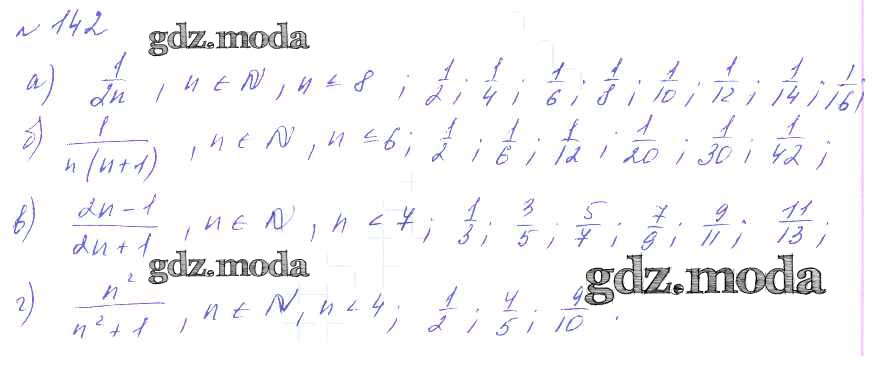 № 142
gdz.moda
а) 1/2n, n ∈ N, n ≤ 8; 1/2; 1/4; 1/6; 1/8; 1/10; 1/12; 1/14; 1/16;
б) 1/n(n+1), n ∈ N, n ≤ 6; 1/2; 1/6; 1/12; 1/20; 1/30; 1/42;
в) 2n-1/2n+1, n ∈ N, n < 7; 1/3; 3/5; 5/7; 7/9; 9/11; 11/13;
gdz.moda
gdz.moda
г) n²/n²+1, n ∈ N, n < 4; 1/2; 4/5; 9/10.